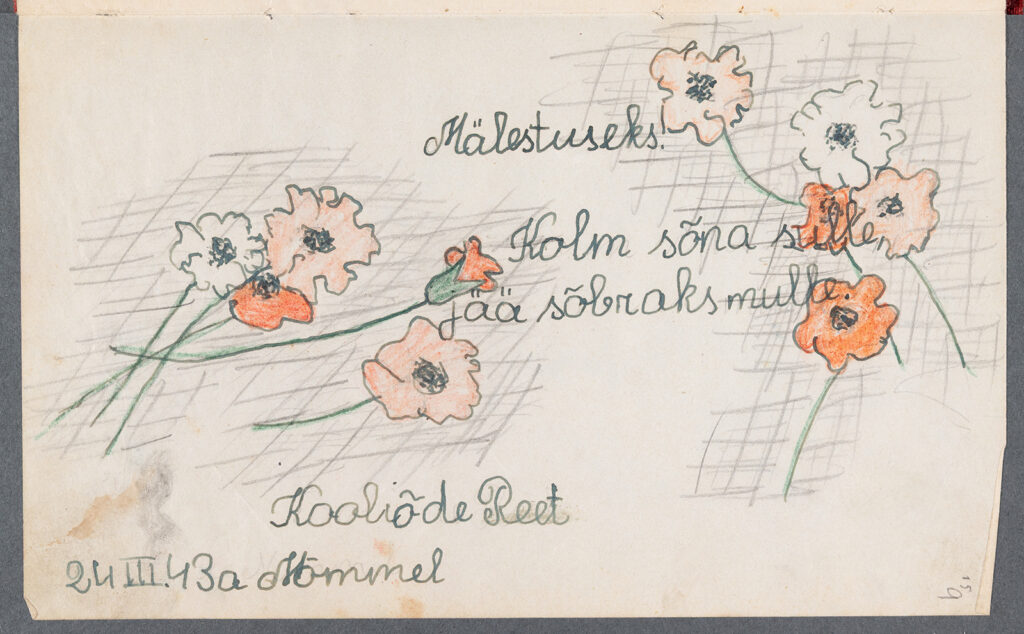 Mälestuseks!
Kolm sõna sulle,
jää sõbraks mulle.
Kooliõde Reet
24 III.43a Nõmmel